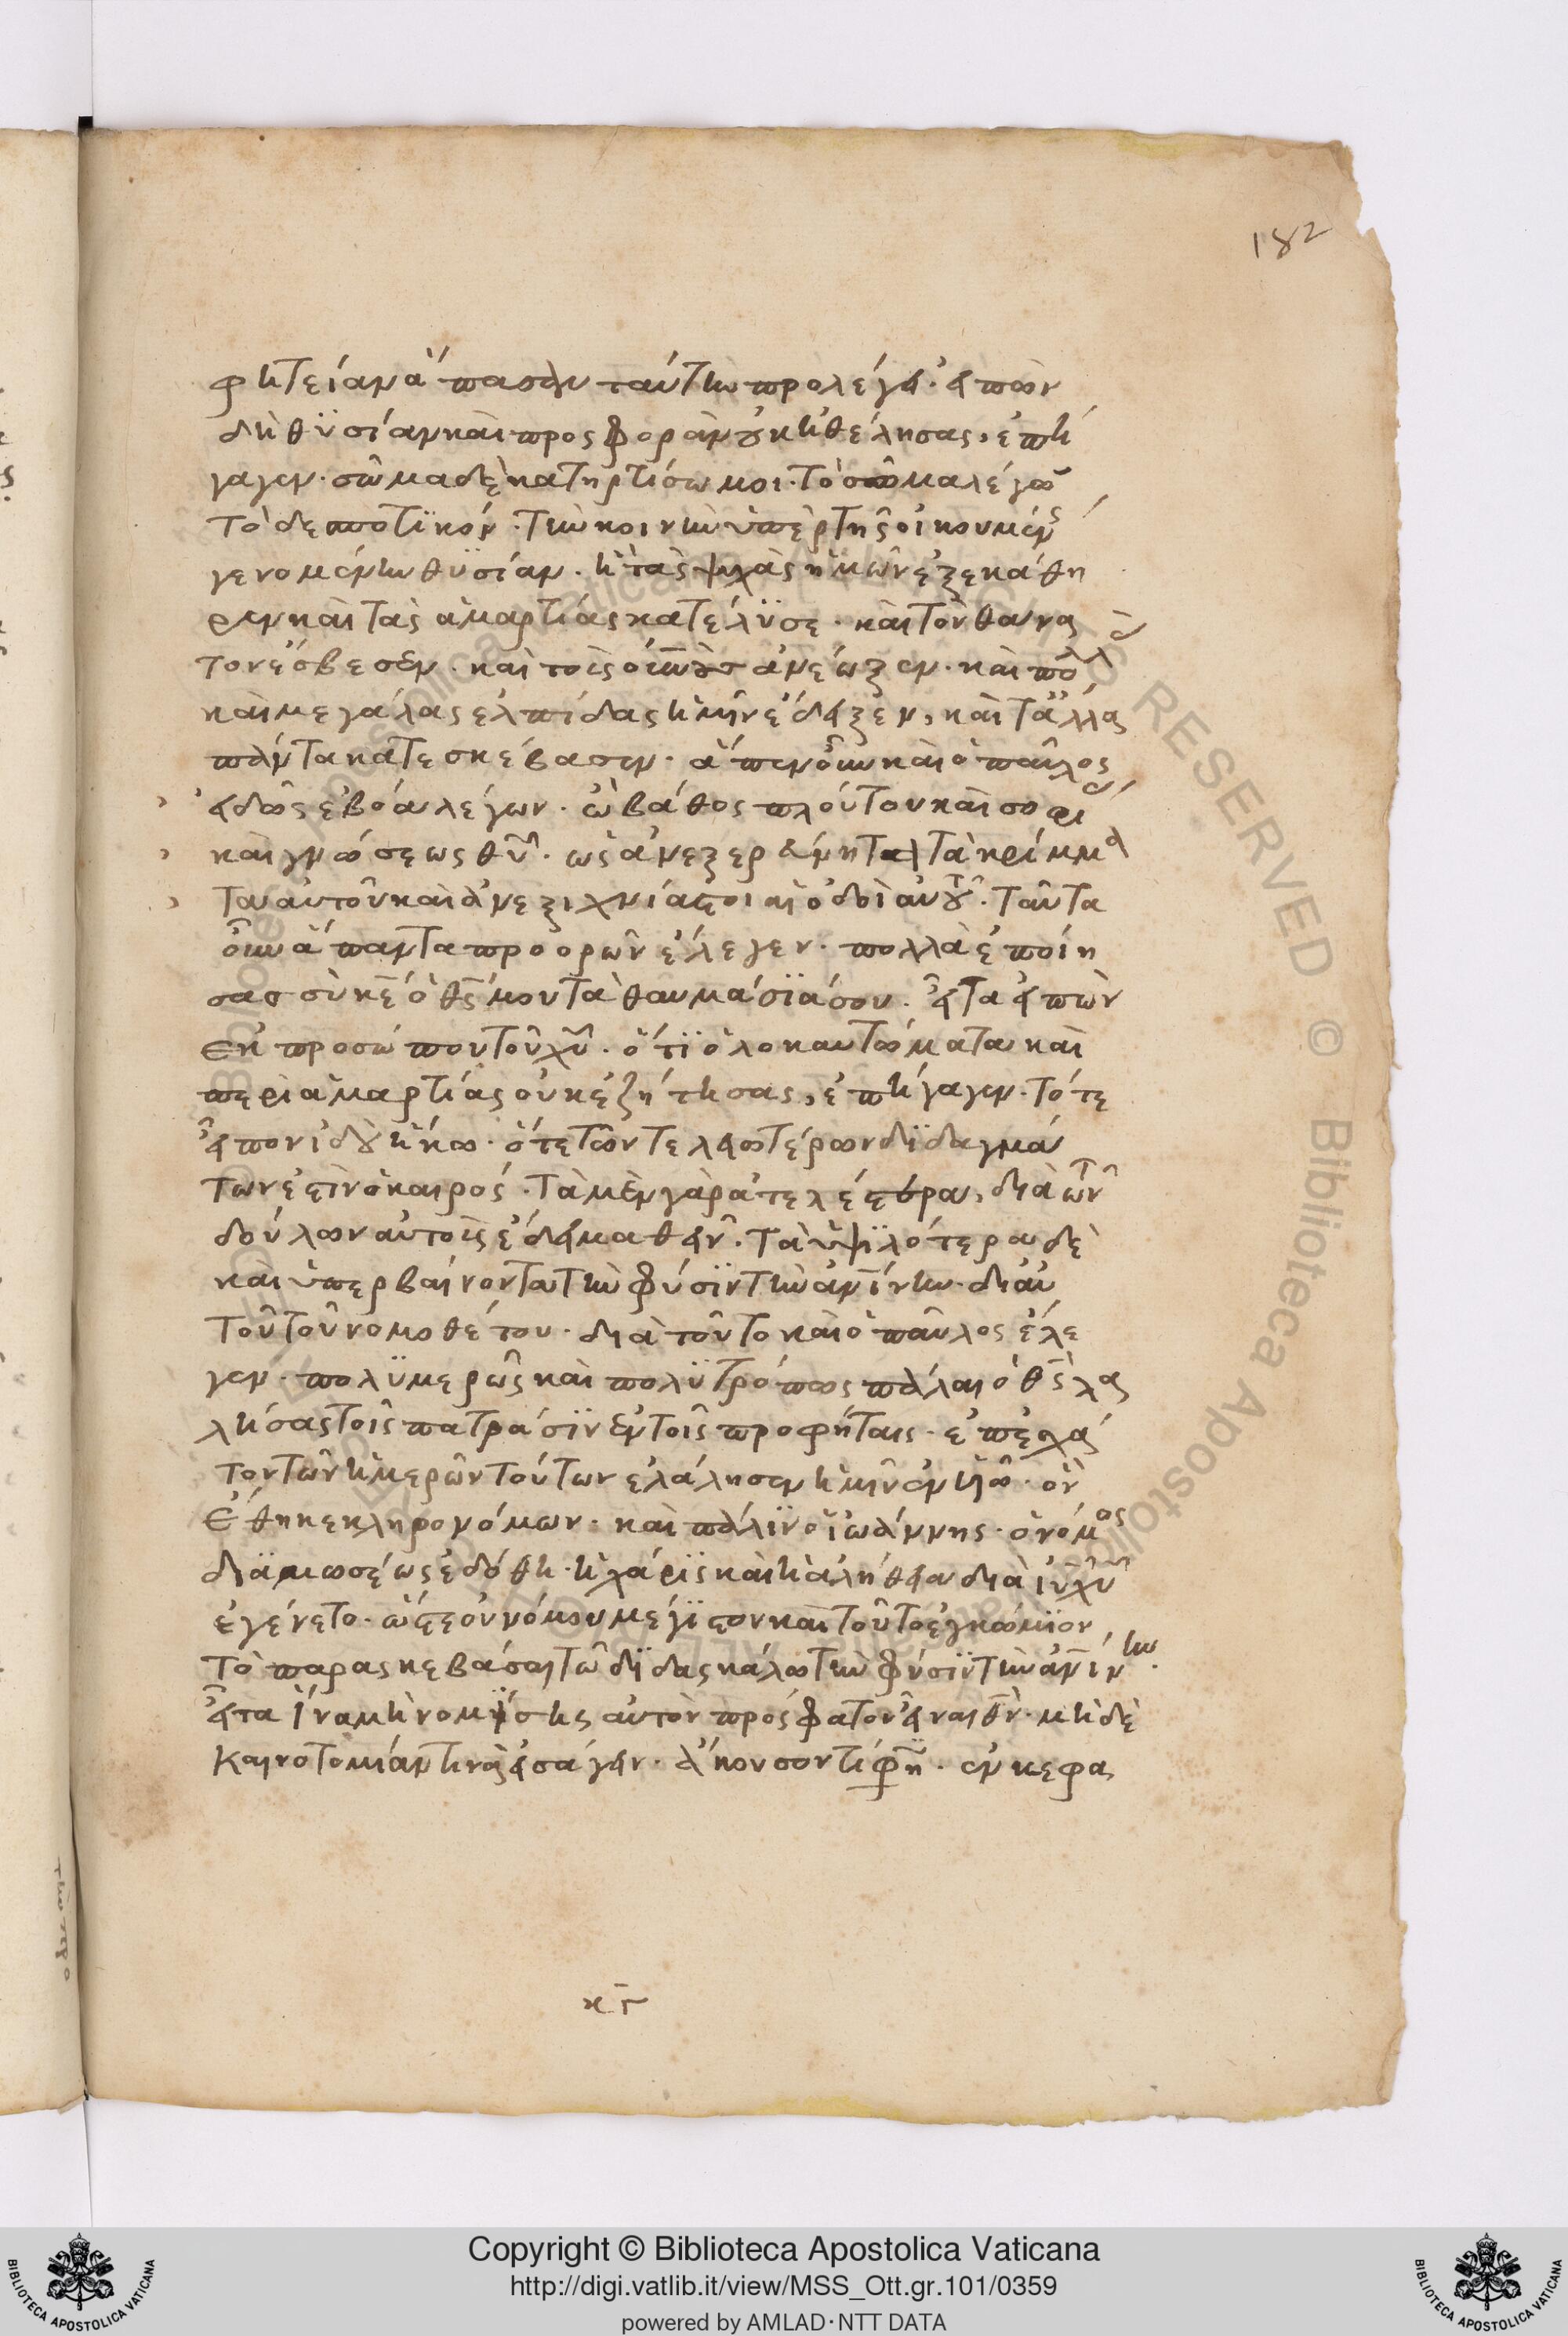 182
φητείαν ἅπασαν ταύτην προλέγει. εἰπὼν
δὴ θϋσίαν καὶ προσφορὰν οὐκ ἠθέλησας, ἐπή
γαγεν. σῶμα δὲ κατηρτίσω μοι. τὸ σῶμα λέγων
τὸ δεσποτϊκόν. τὴν κοινὴν ὑπὲρ τῆς οἰκουμένης
γενομένην θϋσίαν. ἣ τὰς ψυχὰς ἡμῶν ἐξεκάθη
ρεν καὶ τὰς ἁμαρτίας κατέλϋσε. καὶ τὸν θάνα
τον ἔσβεσεν. καὶ τοὺς οὐνοὺσ ἀνέωξεν. καὶ πολλὰς
καὶ μεγάλας ἐλπίδας ἡμῖν ἔδειξεν, καὶ τἄλλα
πάντα κατεσκέβασεν. ἅπερ οὖν καὶ ὁ παῦλος
εἰδὼς ἐβόα λέγων. ὢ βάθος πλούτου καὶ σοφίας
καὶ γνώσεως θυ. ὡς ἀνεξερεύνητα τὰ κρίμμα
τα αὐτοῦ καὶ ἀνεξιχνίαστοι αἱ ὁδοὶ αὐτοῦ. ταῦτα
οὖν ἅπαντα προορῶν ἔλεγεν. πολλὰ ἐποίη
σας σὺ κε ὁ θς μου τὰ θαυμάσϊά σου. εἶτα εἰπὼν
ἐκ προσώπου τοῦ χυ. ὅτϊ ὁλοκαυτώματα καὶ
περὶ ἁμαρτίας οὐκ ἐζήτησας, ἐπήγαγεν. τότε
εἶπον ἰδοὺ ἥκω. ὅτε τῶν τελειωτέρων δϊδαγμά
των ἐστὶν ὁ καιρός. τὰ μὲν γὰρ ἀτελέστερα, διὰ τῶν
δούλων αὐτοῖς ἐδει μαθεῖν. τὰ ὑψϊλότερα δὲ
καὶ ὑπερβαίνοντα τὴν φύσϊν τὴν ἀνίνην. δι' αὐ
τοῦ τοῦ νομοθέτου. διὰ τοῦτο καὶ ὁ παῦλος ἔλε
γεν. πολϋμερῶς καὶ πολϋτρόπως πάλαι ὁ θς λα
λήσας τοῖς πατράσϊν ἐν τοῖς προφήταις. ἐπ' ἐσχά
του τῶν ἡμερῶν τούτων ἐλάλησεν ἡμῖν ἐν υἱῶ. ὃν
ἔθηκε κληρονόμων. καὶ πάλϊν ὁ ἰωάννης. ὁ νόμος
δϊὰ μωσέως ἐδόθη. ἡ χάρϊς καὶ ἡ ἀλήθεια διὰ ιυ χυ
ἐγένετο. ὥστε οὖν νόμου μέγϊστον καὶ τοῦτο ἐγκώμϊον
τὸ παρασκεβάσαι τῶ δϊδασκάλω τὴν φύσϊν τὴν ἀνίνην.
εἶτα ἵνα μὴ νομίσης αὐτὸν πρόσφατον εἶναι θν. μηδὲ
καινοτομίαν τινὰ εἰσάγειν. ἄκουσον τί φη. ἐν κεφα
κγ
Copyright © Biblioteca Apostolica Vaticana
http://digi.vatlib.it/view/MSS_Ott.gr.101/0359
powered by AMLAD·NTT DATA